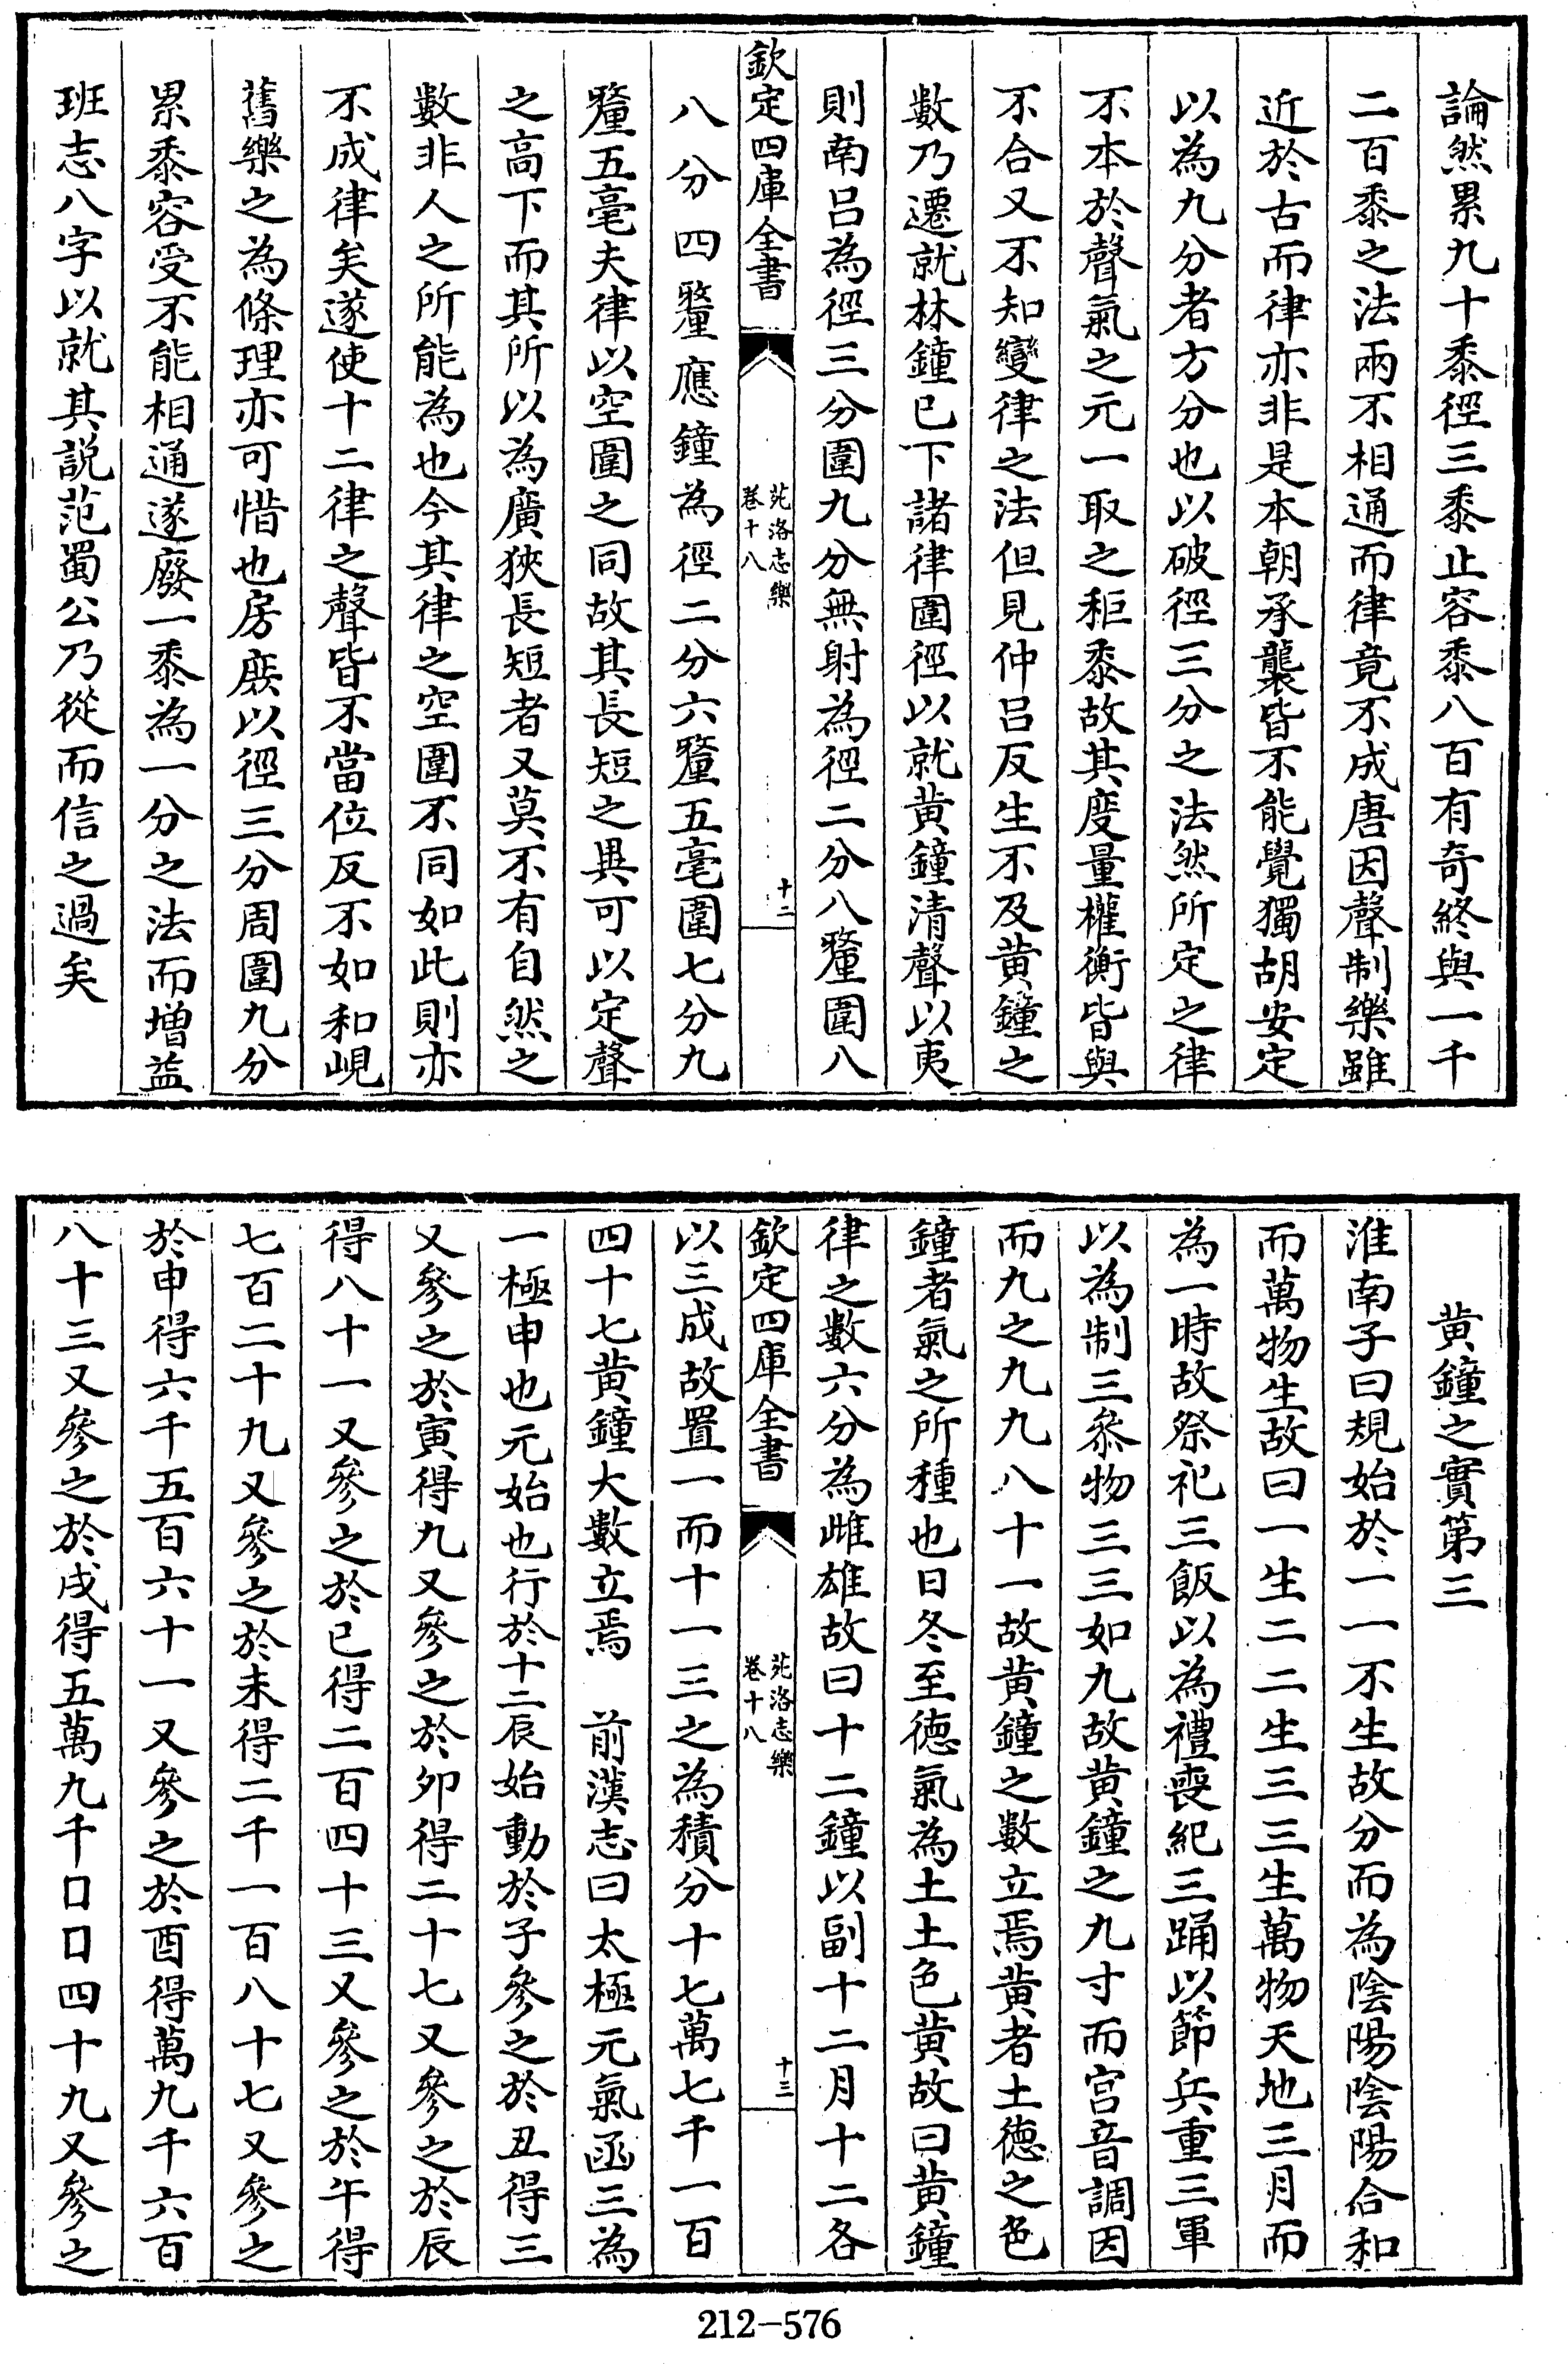 論然累九十黍徑三黍止容黍八百有奇終與一千
二百黍之法兩不相通而律竟不成唐因聲制樂雖
近於古而律亦非是本朝承襲皆不能覺獨胡安定
以為九分者方分也以破徑三分之法然所定之律
不本於聲氣之元一取之秬黍故其度量權衡皆與
不合又不知變律之法但見仲呂反生不及黃鐘之
數乃遷就林鐘已下諸律圍徑以就黃鐘清聲以夷
則南呂為徑三分圍九分無射為徑二分八釐圍八
欽定四庫全書
苑洛志樂
卷十八
十二
八分四釐應鐘為徑二分六釐五毫圍七分九
釐五毫夫律以空圍之同故其長短之異可以定聲
之高下而其所以為廣狹長短者又莫不有自然之
數非人之所能為也今其律之空圍不同如此則亦
不成律矣遂使十二律之聲皆不當位反不如和峴
舊樂之為條理亦可惜也房庶以徑三分周圍九分
累黍容受不能相通遂廢一黍為一分之法而增益
班志八字以就其説范蜀公乃從而信之過矣
黃鐘之實第三
淮南子曰規始於一一不生故分而為陰陽陰陽合和
而萬物生故曰一生二二生三三生萬物天地三月而
為一時故祭祀三飯以為禮喪紀三踊以節兵重三軍
以為制三叅物三三如九故黃鐘之九寸而宮音調因
而九之九九八十一故黃鐘之數立焉黃者土德之色
鐘者氣之所種也日冬至德氣為土土色黃故曰黃鐘
律之數六分為雌雄故曰十二鐘以副十二月十二各
欽定四庫全書
苑洛志樂
卷十八
十三
以三成故置一而十一三之為積分十七萬七千一百
四十七黃鐘大數立焉　前漢志曰太極元氣函三為
一極申也元始也行於十二辰始動於子參之於丑得三
又參之於寅得九又參之於卯得二十七又參之於辰
得八十一又參之於巳得二百四十三又參之於午得
七百二十九又參之於未得二千一百八十七又參之
於申得六千五百六十一又參之於酉得萬九千六百
八十三又參之於戌得五萬九千口口四十九又參之
212-576